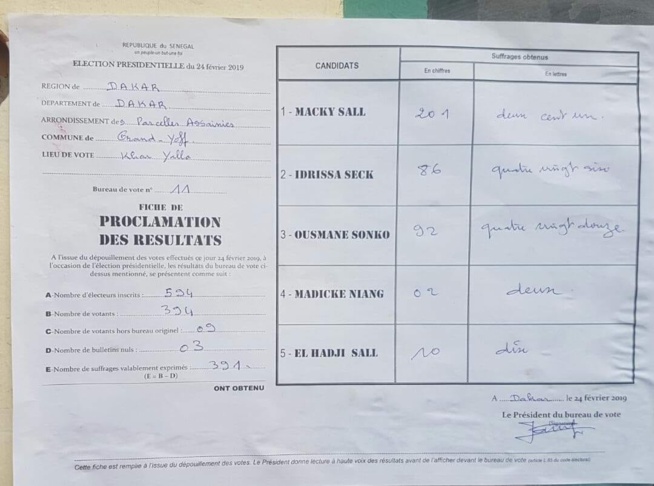 REPUBLIQUE DU SENEGAL
un peuple-un but-une foi
ELECTION PRESIDENTIELLE DU 24 février 2019
REGION de DAKAR
DEPARTEMENT de DAKAR
ARRONDISSEMENT des Parcelles Assainies
COMMUNE de Grand-Yoff
LIEU DE VOTE Khar Yalla
Bureau de vote n° 11
FICHE DE
PROCLAMATION
DES RESULTATS
A l'issue du dépouillement des votes effectués ce jour 24 février 2019, à
l'occasion de l'élection présidentielle, les résultats du bureau de vote ci-
dessus mentionné, se présentent comme suit :
A-Nombre d'électeurs inscrits : 594
B-Nombre de votants : 394
C-Nombre de votants hors bureau originel : 09
D-Nombre de bulletins nuls : 03
E-Nombre de suffrages valablement exprimés 391
(E = B - D)
ONT OBTENU
CANDIDATS
Suffrages obtenus
En chiffres
En lettres
1 - MACKY SALL 201 deux cent un.
2 - IDRISSA SECK 86 quatre vingt six
3 - OUSMANE SONKO 92 quatre vingt douze
4 - MADICKE NIANG 02 deux
5 - EL HADJI SALL 10 dix
A Dakar le 24 février 2019
Le Président du bureau de vote
Cette fiche est remplie à l'issue du dépouillement des votes. Le Président donne lecture à haute voix des résultats avant de l'afficher devant le bureau de vote